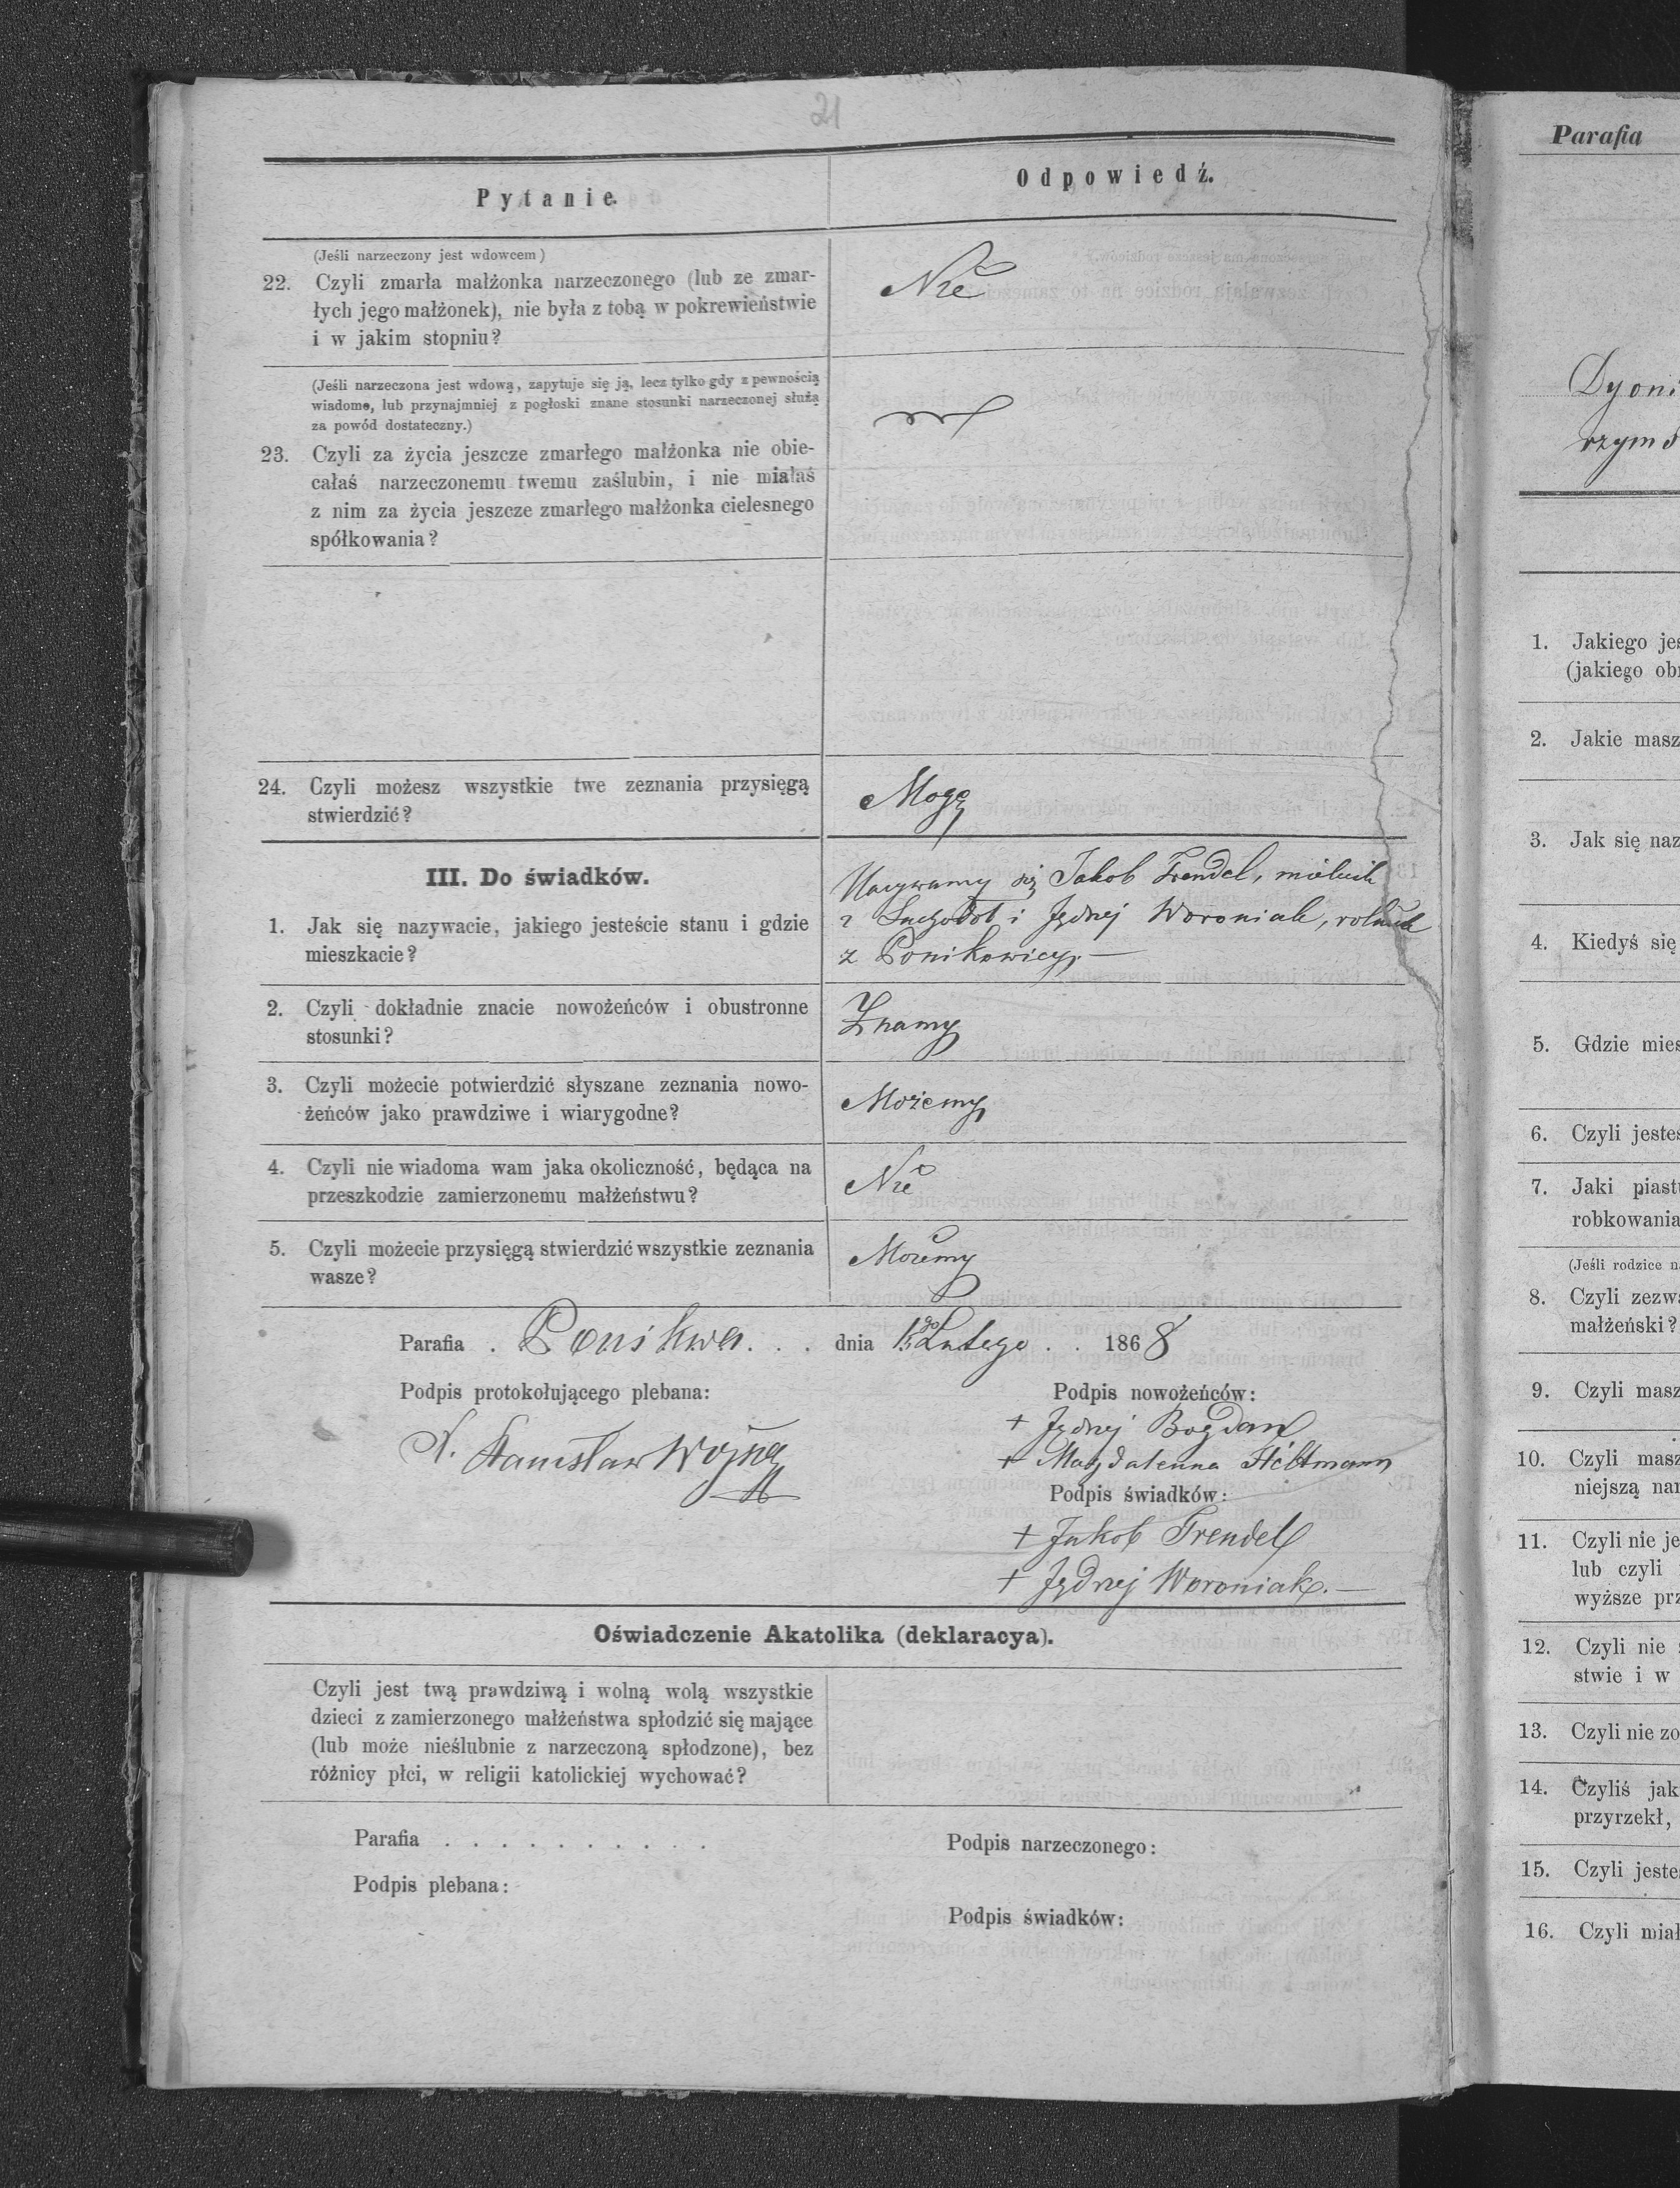 21
Pytanie.
Odpowiedź.
(Jeśli narzeczony jest wdowcem)
22. Czyli zmarła małżonka narzeczonego (lub ze zmar-
łych jego małżonek), nie była z tobą w pokrewieństwie
i w jakim stopniu?
Nie
(Jeśli narzeczona jest wdową, zapytuje się ją, lecz tylko gdy z pewnością
wiadome, lub przynajmniej z pogłoski znane stosunki narzeczonej służą
za powód dostateczny.)
23. Czyli za życia jeszcze zmarłego małżonka nie obie-
całaś narzeczonemu twemu zaślubin, i nie miałaś
z nim za życia jeszcze zmarłego małżonka cielesnego
spółkowania?
24. Czyli możesz wszystkie twe zeznania przysięgą
stwierdzić?
Mogę
III. Do świadków.
1. Jak się nazywacie, jakiego jesteście stanu i gdzie
mieszkacie?
Nazywamy się Jakob Trendel,
z i Jędrzej Woroniak, rolnik
z Ponikowicy. —
2. Czyli dokładnie znacie nowożeńców i obustronne
stosunki?
Znamy
3. Czyli możecie potwierdzić słyszane zeznania nowo-
żeńców jako prawdziwe i wiarygodne?
Możemy
4. Czyli nie wiadoma wam jaka okoliczność, będąca na
przeszkodzie zamierzonemu małżeństwu?
Nie
5. Czyli możecie przysięgą stwierdzić wszystkie zeznania
wasze?
Możemy
Parafia . Ponikwa . . . dnia Lutego . . 1868
Podpis protokołującego plebana:
Podpis nowożeńców:
X. Stanisław Wojna
+ Jędrzej Bogdan
+ Magdalenna
Podpis świadków:
+ Jakob Trendel
+ Jędrzej Woroniak. —
Oświadczenie Akatolika (deklaracya).
Czyli jest twą prawdziwą i wolną wolą wszystkie
dzieci z zamierzonego małżeństwa spłodzić się mające
(lub może nieślubnie z narzeczoną spłodzone), bez
różnicy płci, w religii katolickiej wychować?
Parafia . . . . . . . . . .
Podpis narzeczonego:
Podpis plebana:
Podpis świadków:
Parafia
Dyoni
rzyms
1. Jakiego jes
(jakiego ob
2. Jakie masz
3. Jak się naz
4. Kiedyś się
5. Gdzie mies
6. Czyli jesteś
7. Jaki piast
robkowania
(Jeśli rodzice n
8. Czyli zezwa
małżeński?
9. Czyli masz
10. Czyli masz
niejszą nar
11. Czyli nie je
lub czyli
wyższe prz
12. Czyli nie
stwie i w
13. Czyli nie zo
14. Czyliś jak
przyrzekł,
15. Czyli jeste
16. Czyli miał